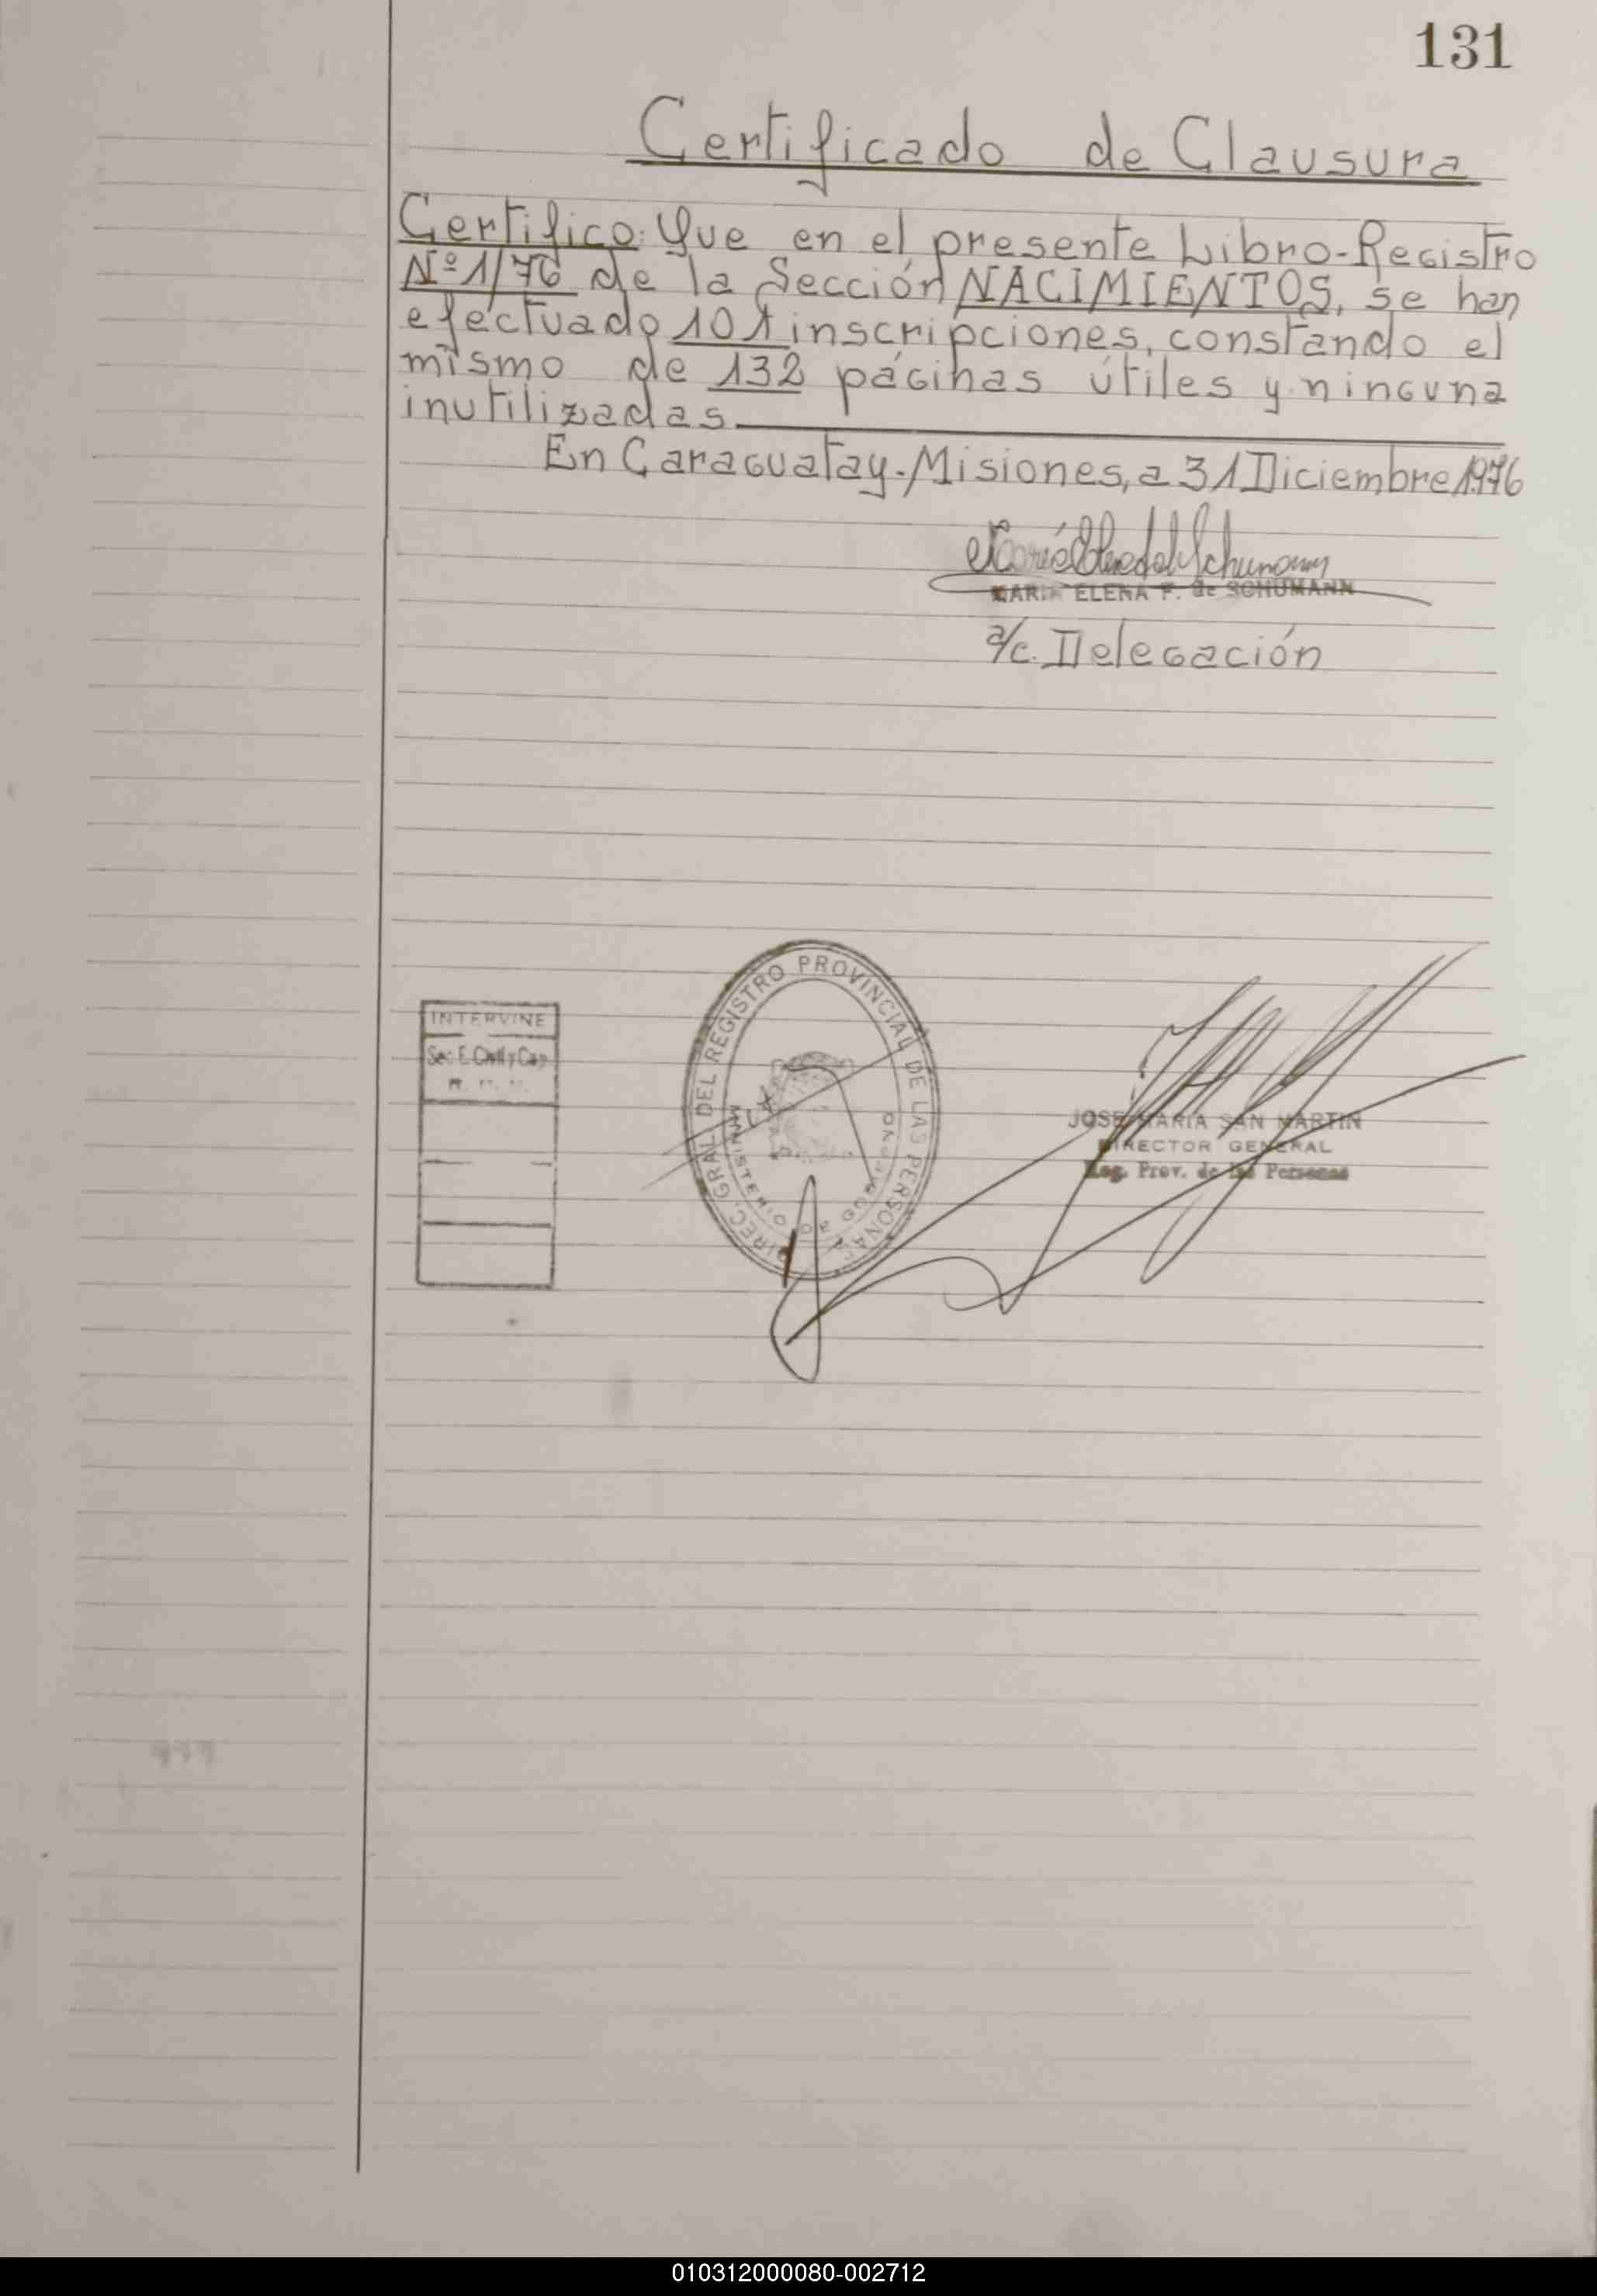 131
Certificado de Clausura
Certifico: Que en el presente Libro-Registro
Nº 1/76 de la Sección NACIMIENTOS, se han
efectuado 101 inscripciones, constando el
mismo de 132 páginas útiles y ninguna
inutilizadas
En Caraguatay-Misiones, a 31 Diciembre 1976
MARIA ELENA F. de SCHUMANN
a/c. Delegación
INTERVINE
Sec. E. Civil y Cap.
DIREC. GRAL DEL REGISTRO PROVINCIAL DE LAS PERSONAS
MINISTERIO DE GOBIERNO
JOSE MARIA SAN MARTIN
DIRECTOR GENERAL
Reg. Prov. de las Personas
010312000080-002712